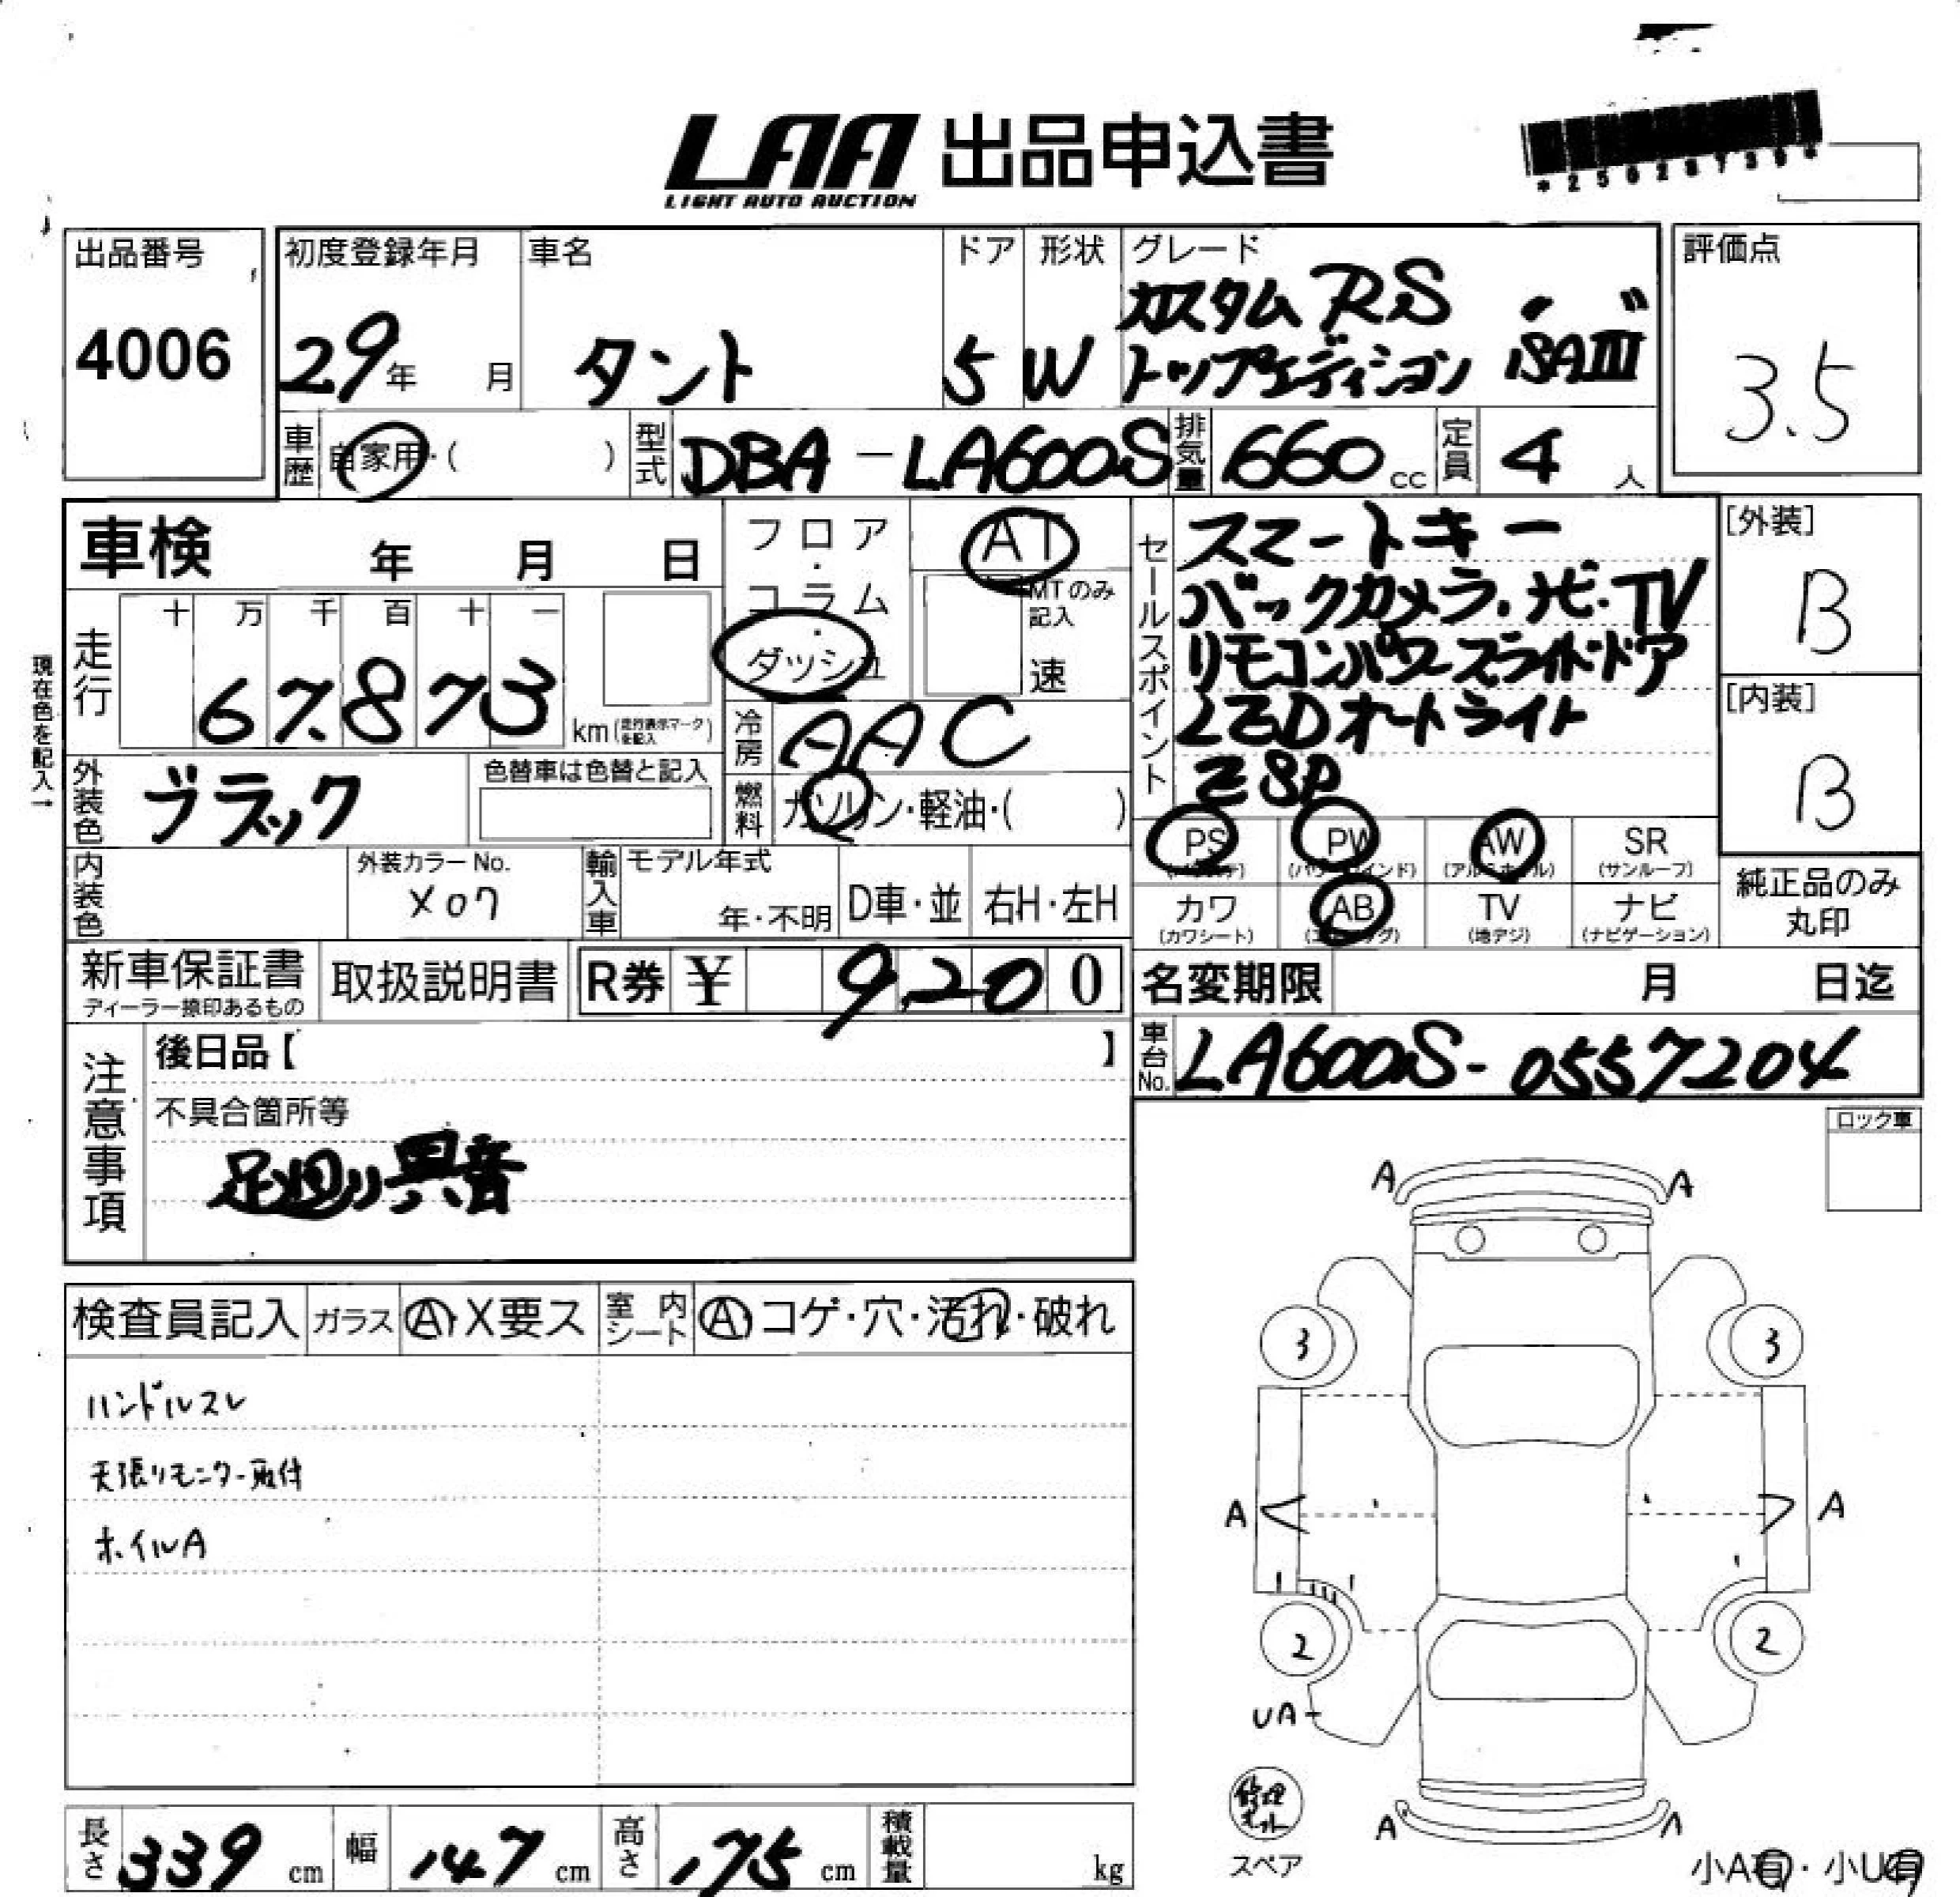 LAA 出品申込書
LIGHT AUTO AUCTION
出品番号
4006
初度登録年月
29年 月
車名
タント
ドア
5
形状
W
グレード
カスタム RS
トップエディション "SAIII"
評価点
3.5
車歴 自家用・( )
型式 DBA-LA600S
排気量 660 cc
定員 4 人
車検 年 月 日
フロア・コラム・ダッシュ
AT
MTのみ記入
速
走行
十 万 千 百 十 一
67,873
km(走行表示マークを記入)
現在色を記入→
冷房 AAC
外装色 ブラック
色替車は色替と記入
燃料 ガソリン・軽油・( )
セールスポイント
スマートキー
バックカメラ.ナビ.TV
リモコンパワースライドドア
LEDオートライト
ESP
[外装]
B
[内装]
B
内装色
外装カラー No.
X07
輸入車
モデル年式
年・不明
D車・並
右H・左H
PS (パワステ)
PW (パワーウインド)
AW (アルミホイル)
SR (サンルーフ)
カワ (カワシート)
AB (エアバッグ)
TV (地デジ)
ナビ (ナビゲーション)
純正品のみ
丸印
新車保証書
ディーラー捺印あるもの
取扱説明書
R券 ¥ 9,200
名変期限 月 日迄
車台No. LA600S-0557204
注意事項
後日品【 】
不具合箇所等
足廻り異音
ロック車
検査員記入
ガラス Ⓐ・X要ス
室内シート Ⓐコゲ・穴・汚れ・破れ
ハンドルスレ
天張リモニター取付
ホイルA
A A
3 3
A A
2 2
UA
A A
修理キット
スペア
小A有・小U有
長さ 339 cm
幅 147 cm
高さ 175 cm
積載量 kg